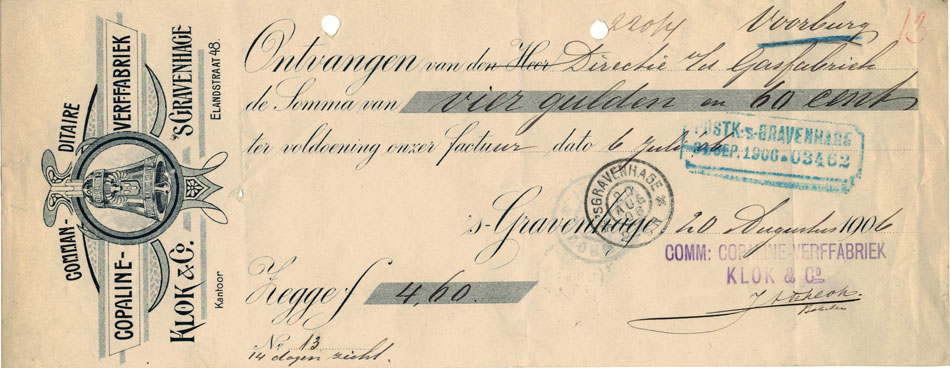 COMMAN-DITAIRE
COPALINE-VERFFABRIEK
KLOK & Co. 'S GRAVENHAGE
Kantoor ELANDSTRAAT 48.
Voorburg
13
Ontvangen van den Heer Directie Gasfabriek
de Somma van vier gulden en 60 cent
ter voldoening onzer factuur dato 6 Juli
POSTK: 's-GRAVENHAGE
SEP. 1906 * 03462
'SGRAVENHAGE
AUG
's-Gravenhage, 20 Augustus 1906
COMM: COPALINE-VERFFABRIEK
KLOK & Co
Zegge f 4,60.
No. 13
14 dagen zicht.